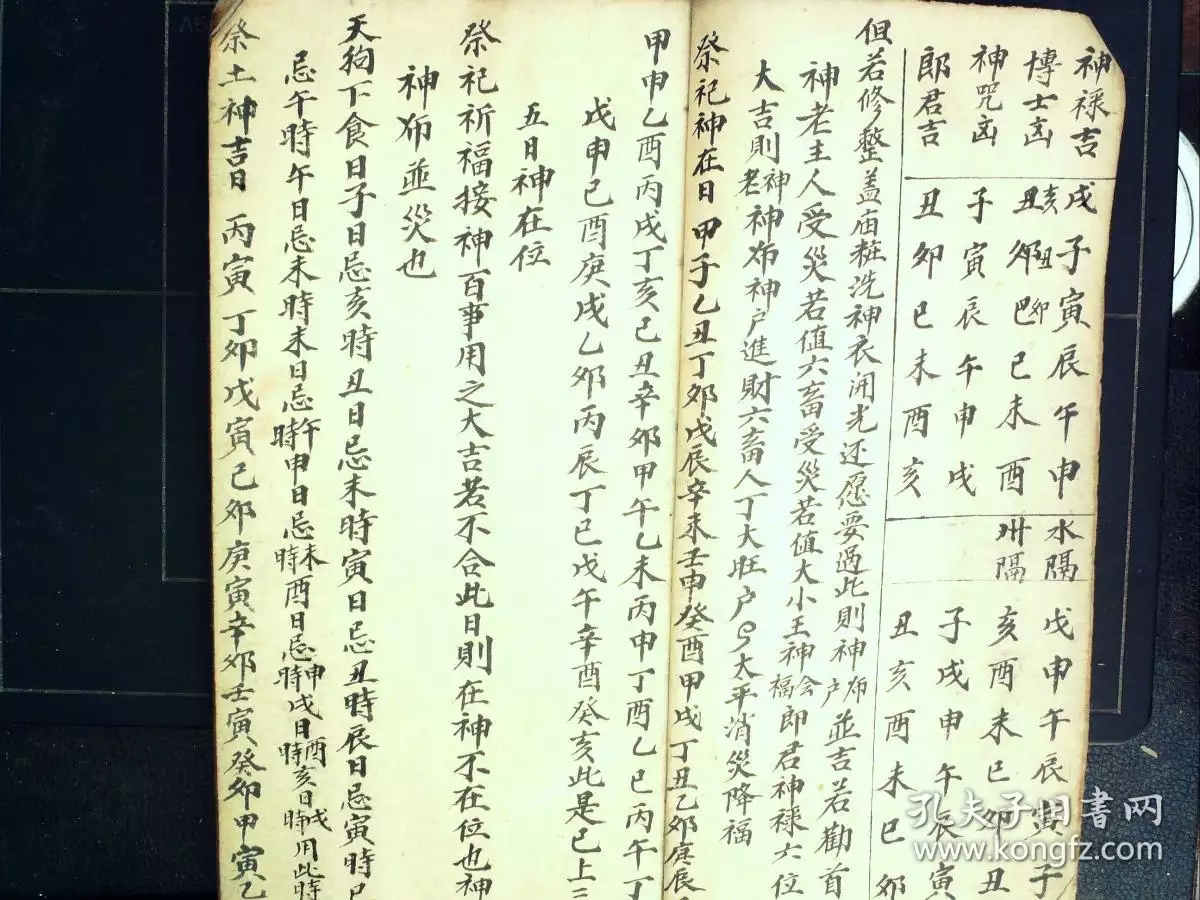 神祿吉 戌子寅辰午申 水隔 戌申午辰寅子
博士凶 亥丑卯巳未酉 州隔 亥酉未巳卯丑
神咒凶 子寅辰午申戌 子戌申午辰寅
郎君吉 丑卯巳未酉亥 丑亥酉未巳卯
但若修整盖庙粧洗神衣開光还愿要過此則神布户並吉若勸首
神老主人受災若值六畜受災若值大小王神会福郎君神禄六位
大吉則神老神布神户進財六畜人丁大旺户户太平消災降福
祭祀神在日 甲子乙丑丁卯戊辰辛未壬申癸酉甲戌丁丑乙卯庚辰
甲申乙酉丙戌丁亥己丑辛卯甲午乙未丙申丁酉乙巳丙午丁
戊申己酉庚戌乙卯丙辰丁巳戊午辛酉癸亥此是已上三
五日神在位
祭祀祈福接神百事用之大吉若不合此日則在神不在位也神
神布並災也
天狗下食日子日忌亥時丑日忌未時寅日忌丑時辰日忌寅時巳
忌午時午日忌未時未日忌午時申日忌未時酉日忌申時戌日酉時亥日戌時用此時
祭土神吉日 丙寅丁卯戊寅己卯庚寅辛卯壬寅癸卯甲寅乙
孔夫子旧書网
www.kongfz.com